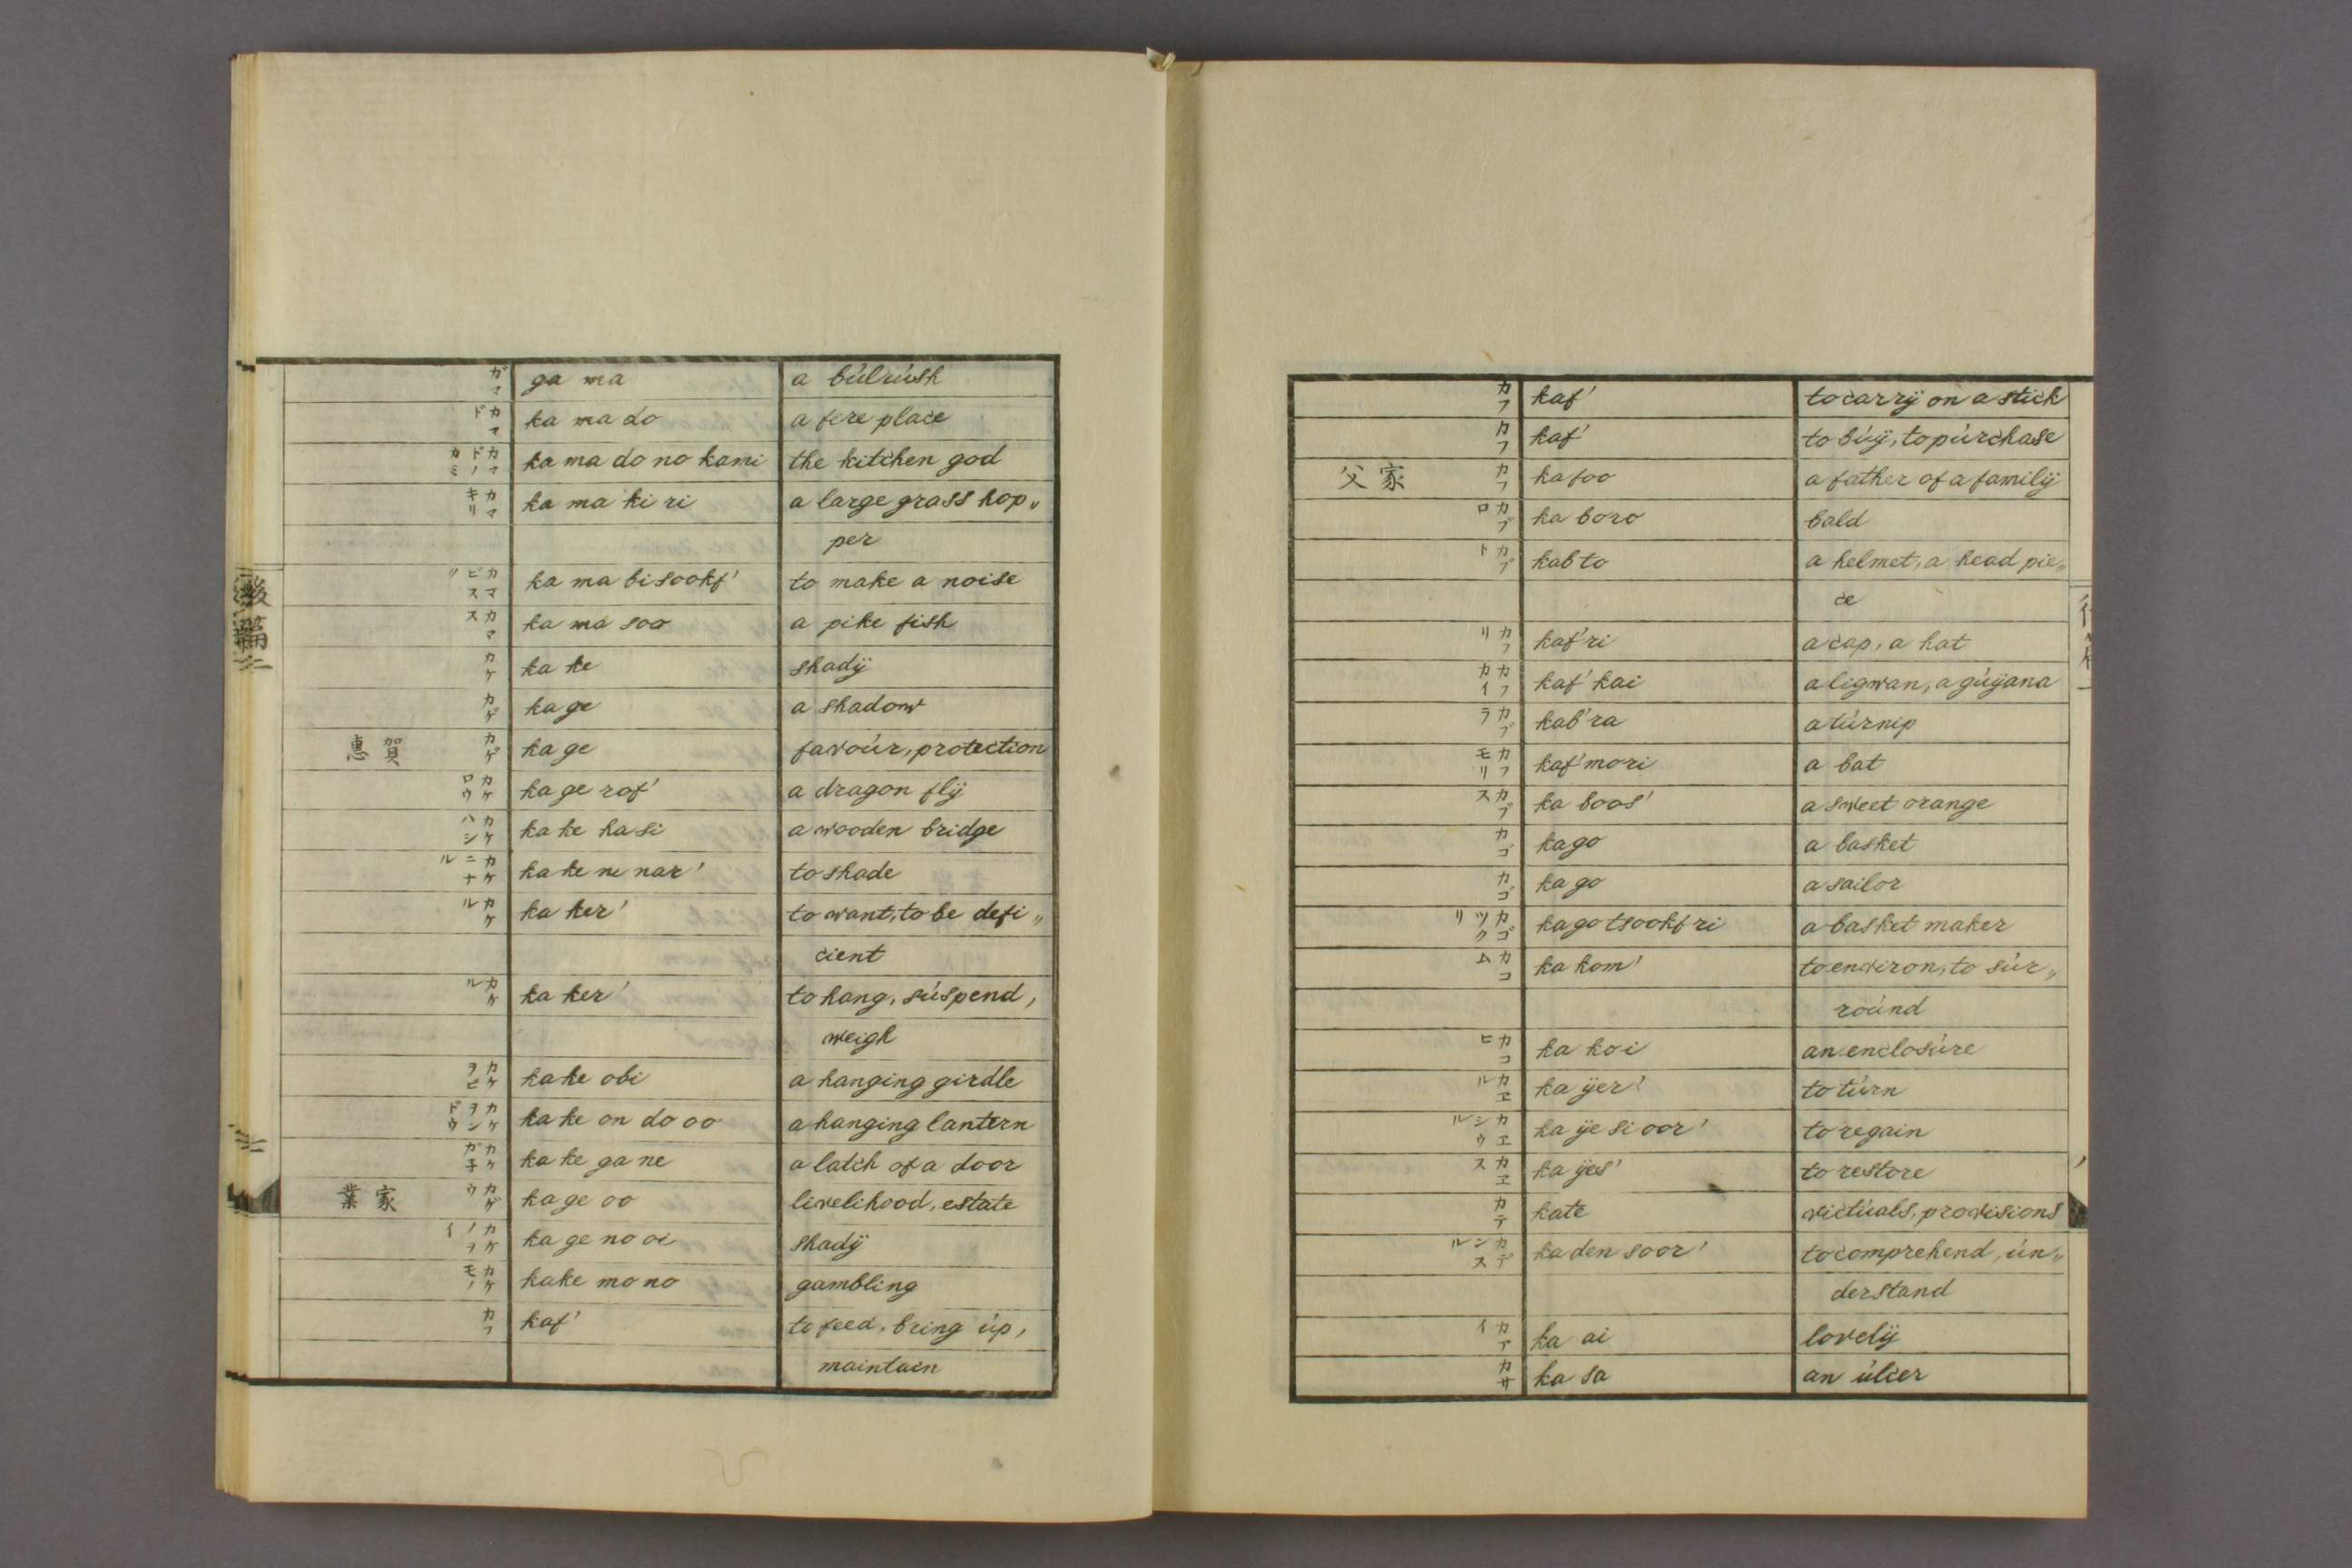 ガマ ga ma a búlrúsh
カマド ka ma do a fire place
カマドノカミ ka ma do no kami the kitchen god
カマキリ ka ma ki ri a large grass hop„
per
カマビスッ ka ma bi sookf' to make a noise
カマス ka ma soo a pike fish
カケ ka ke shadÿ
カゲ ka ge a shadow
賀惠 カゲ ka ge favoúr, protection
カケロウ ka ge rof' a dragon flÿ
カケハシ ka ke hasi a wooden bridge
カケニナル ka ke ni nar' to shade
カケル ka ker' to want, to be defi„
cient
カケル ka ker' to hang, súspend,
weigh
カケヲビ ka ke obi a hanging girdle
カケヲンドウ ka ke on do oo a hanging lantern
カケガ子 ka ke ga ne a latch of a door
家業 カゲウ ka ge oo livelihood, estate
カケノヲイ ka ge no oi shadÿ
カケモノ kake mo no gambling
カフ kaf' to feed, bring úp,
maintain
後篇
カフ kaf' to carrÿ on a stick
カフ kaf' to búÿ, to púrchase
家父 カフ ka foo a father of a familÿ
カブロ ka boro bald
カブト kab to a helmet, a head pie„
ce
カフリ kaf'ri a cap, a hat
カフカイ kaf' kai a ligwan, a gúÿana
カブラ kab'ra a túrnip
カフモリ kaf'mori a bat
カブス ka boos' a sweet orange
カゴ ka go a basket
カゴ ka go a sailor
カゴツクリ ka go tsookf ri a basket maker
カコム ka kom' to environ, to súr„
roúnd
カコヒ ka ko i an enclosúre
カヱル ka ÿer' to túrn
カエシウル ka ÿe si oor' to regain
カヱス ka ÿes' to restore
カテ kate victúals, provisions
カデンスル ka den soor' to comprehend, ún„
derstand
カアイ ka ai lovelÿ
カサ ka sa an úlcer